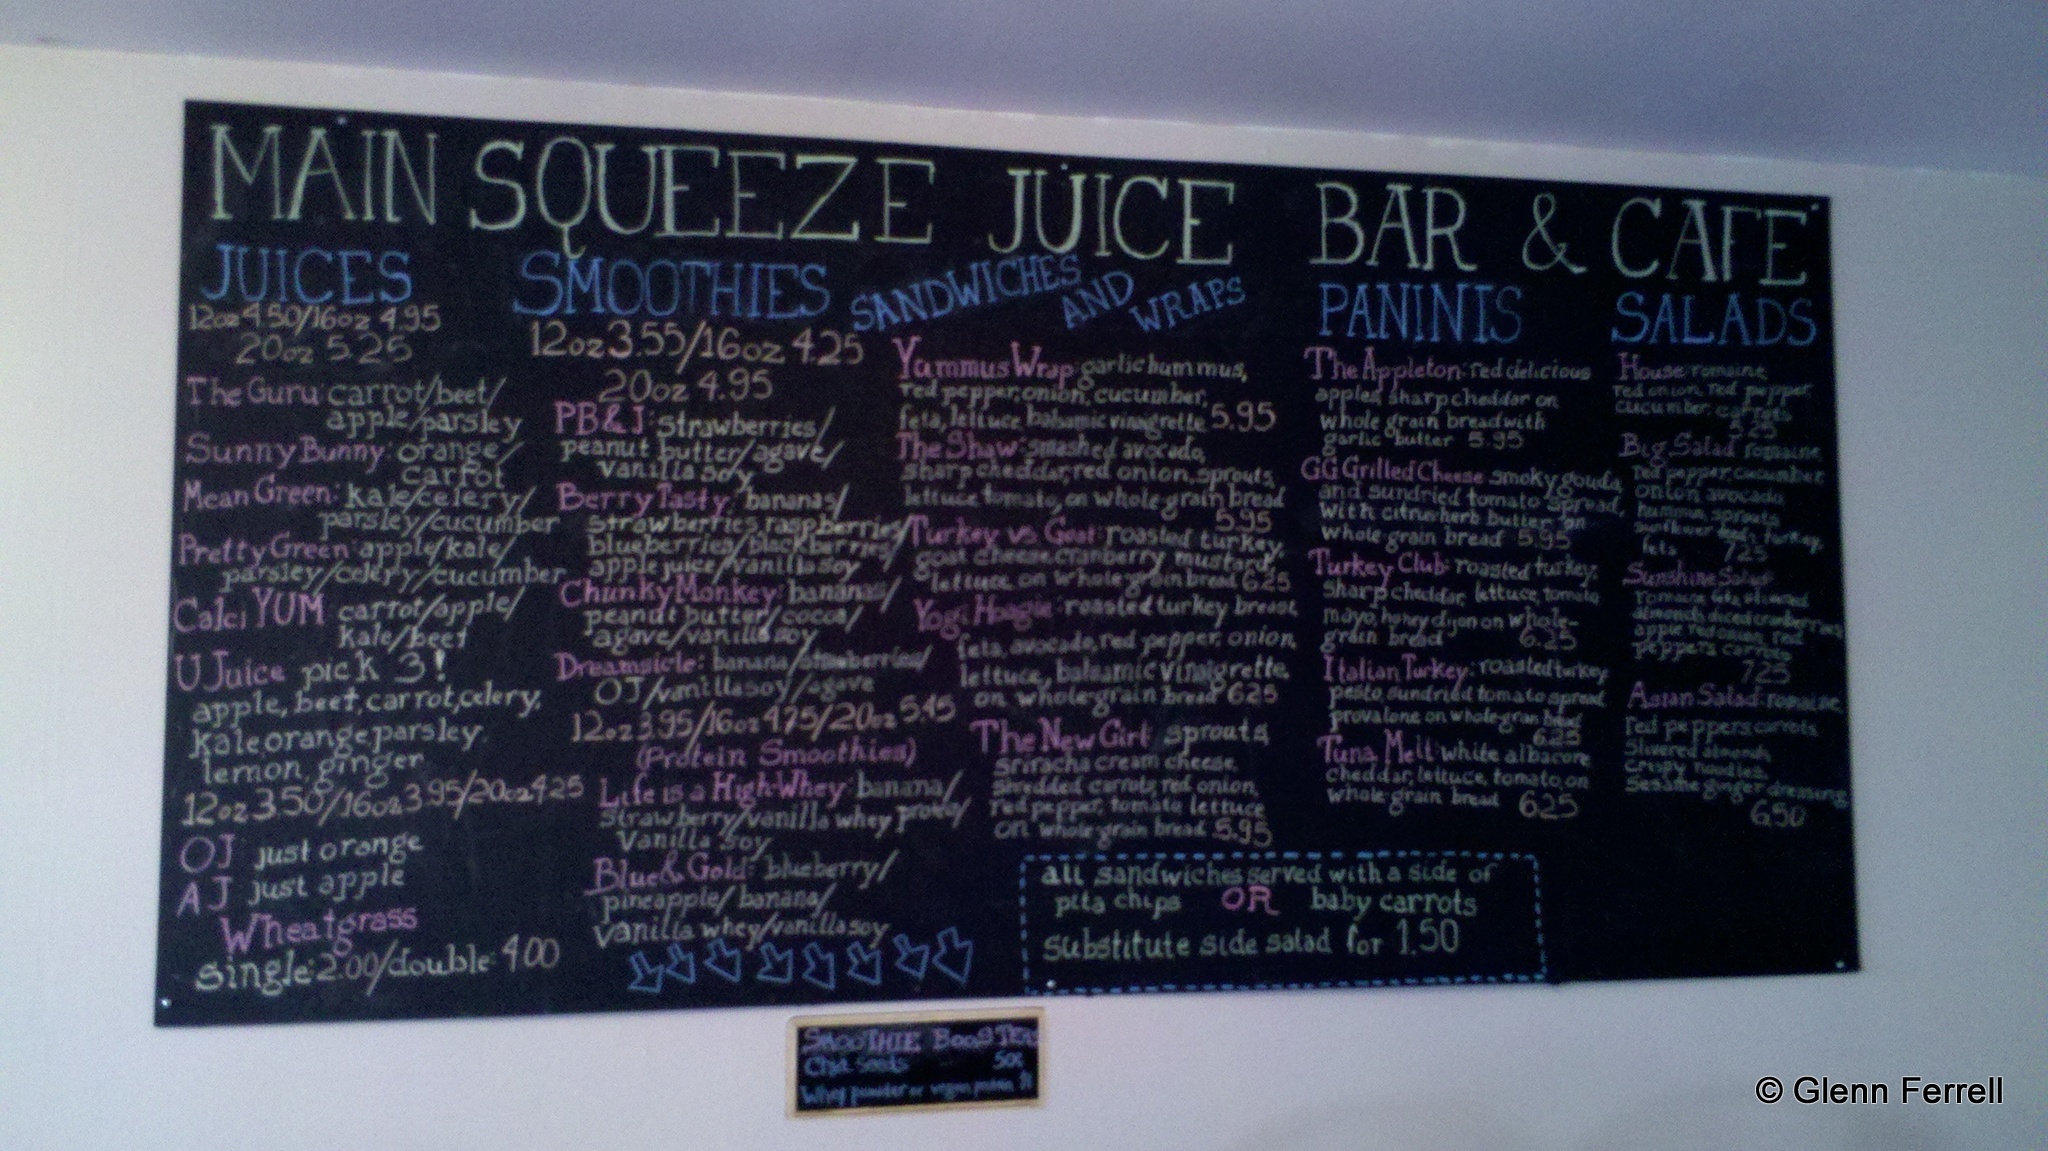 MAIN SQUEEZE JUICE BAR & CAFE
JUICES
12oz 4.50/16oz 4.95
20oz 5.25
The Guru: carrot/beet/
apple/parsley
Sunny Bunny: orange/
carrot
Mean Green: kale/celery/
parsley/cucumber
Pretty Green: apple/kale/
parsley/celery/cucumber
Calci YUM carrot/apple/
kale/beet
U Juice pick 3!
apple, beet, carrot, celery,
kale orange parsley
lemon, ginger
12oz 3.50/16oz 3.95/20oz 4.25
OJ just orange
AJ just apple
Wheatgrass
single: 2.00/double: 4.00
SMOOTHIES
12oz 3.55/16oz 4.25
20oz 4.95
PB&J: strawberries/
peanut butter/agave/
vanilla soy
Berry Tasty: bananas/
strawberries, raspberries/
blueberries/blackberries/
apple juice/vanilla soy
Chunky Monkey: bananas/
peanut butter/cocoa/
agave/vanilla soy
Dreamsicle: banana/strawberries/
OJ/vanilla soy/agave
12oz 3.95/16oz 4.75/20oz 5.45
(Protein Smoothies)
Life is a High Whey: banana/
strawberry/vanilla whey protein/
Vanilla soy
Blue & Gold: blueberry/
pineapple/banana/
vanilla whey/vanilla soy
SANDWICHES
AND
WRAPS
Yammus Wrap: garlic hummus,
red pepper, onion, cucumber,
feta, lettuce balsamic vinaigrette 5.95
The Shaw: smashed avocado,
sharp cheddar, red onion, sprouts,
lettuce tomato, on whole grain bread
5.95
Turkey vs Goat: roasted turkey,
goat cheese, cranberry mustard,
lettuce on whole-grain bread 6.25
Yogi Hoagie: roasted turkey breast
feta, avocado, red pepper, onion
lettuce, balsamic vinaigrette,
on whole-grain bread 6.25
The New Girl sprouts,
sriracha cream cheese,
shredded carrots, red onion,
red pepper, tomato lettuce
on whole-grain bread 5.95
PANINIS
The Appleton: red delicious
apples, sharp cheddar on
whole grain bread with
garlic butter 5.95
GG Grilled Cheese smoky gouda
and sundried tomato spread,
with citrus herb butter on
whole grain bread 5.95
Turkey Club: roasted turkey,
sharp cheddar, lettuce, tomato
mayo, honey dijon on whole-
grain bread 6.25
Italian Turkey: roasted turkey
pesto, sundried tomato spread
provalone on whole grain bread
6.25
Tuna Melt: white albacore
cheddar, lettuce, tomato, on
whole-grain bread 6.25
SALADS
House: romaine
red onion, red pepper
cucumber, carrots
5.25
Big Salad romaine
red pepper, cucumber
onion avocado
hummus, sprouts
sunflower turkey,
feta 7.25
Sunshine Salad
romaine feta slivered
almonds dried cranberries
apple red onion red
peppers carrots
7.25
Asian Salad: romaine,
red peppers carrots
Slivered almonds
Crispy noodles
Sesame ginger dressing
6.50
all sandwiches served with a side of
pita chips OR baby carrots
substitute side salad for 1.50
SMOOTHIE BOOSTERS
Chia seeds 50¢
Whey powder or vegan protein
© Glenn Ferrell